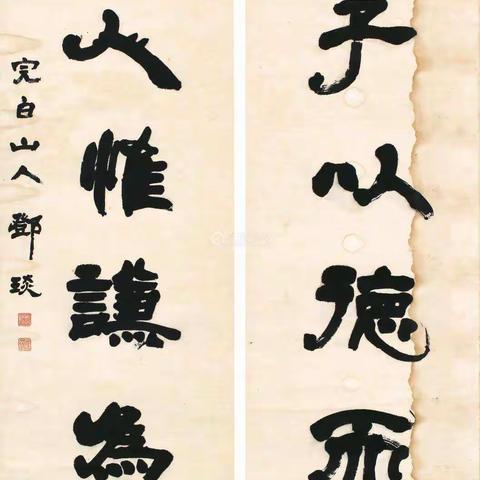 子以德而
人惟謙為
完白山人鄧琰